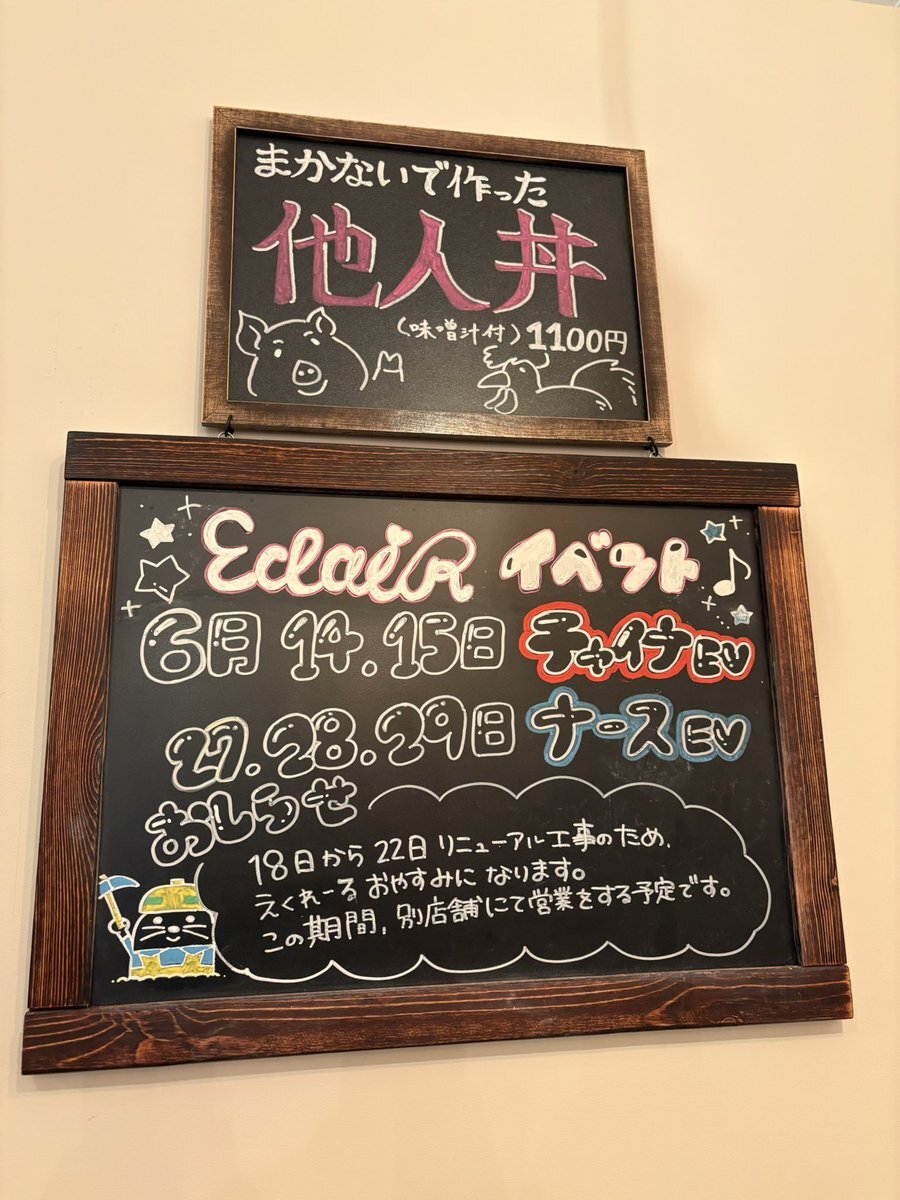 まかないで作った
他人丼
(味噌汁付) 1100円
EclaiR イベント
6月 14.15日 チャイナEV
27.28.29日 ナースEV
おしらせ
18日から22日 リニューアル工事のため、
えくれーるおやすみになります。
この期間、別店舗にて営業をする予定です。